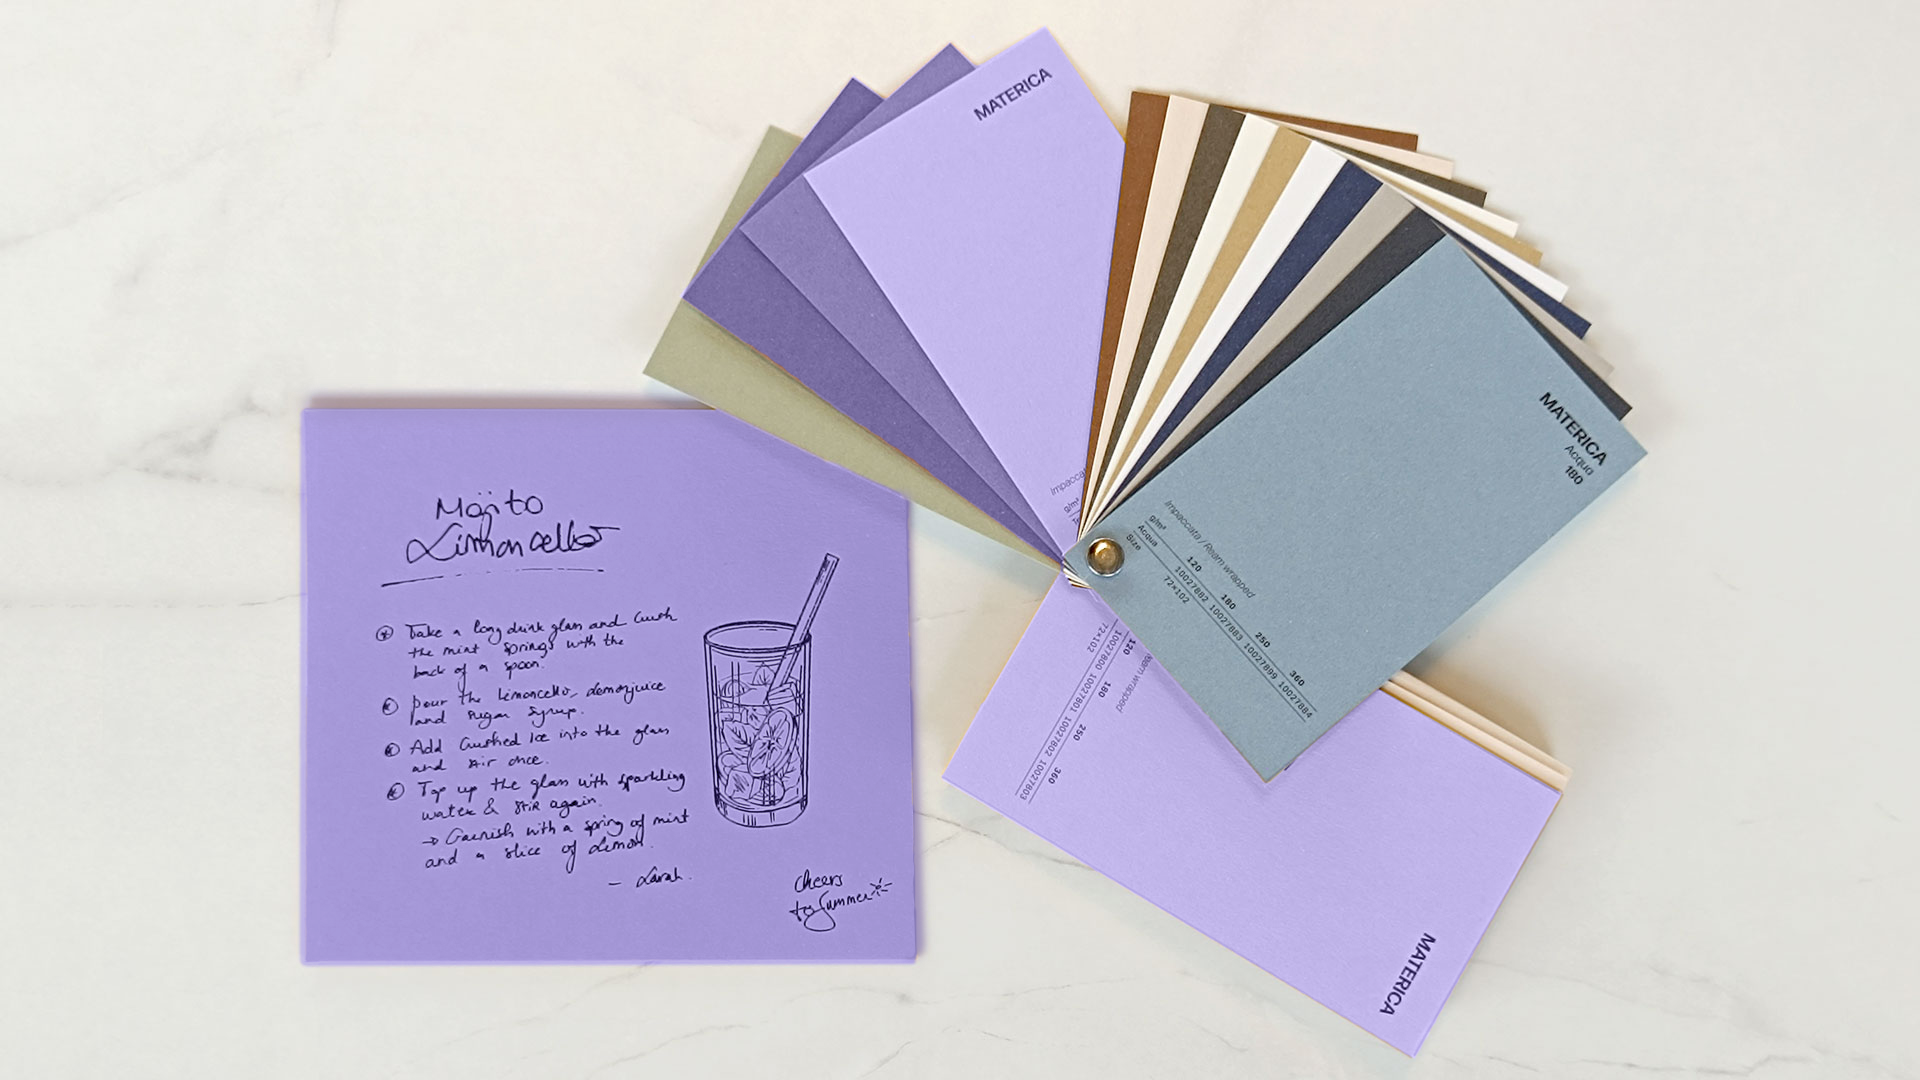 Mojito
Limoncello
Take a long drink glass and Crush
the mint springs with the
back of a spoon.
pour the Limoncello, Lemonjuice
and sugar syrup.
Add Crushed Ice into the glass
and stir once.
Top up the glass with sparkling
water & stir again.
→ Garnish with a spring of mint
and a slice of Lemon.
- Larah.
Cheers
to Summer
MATERICA
Impaccata
g/m²
MATERICA
Acqua
180
Impaccata / Ream wrapped
g/m² 120 180 250 360
Acqua 10027882 10027883 10027899 10027884
Size 72×102
Ream wrapped
120 180 250 360
10027800 10027801 10027802 10027803
72×102
MATERICA